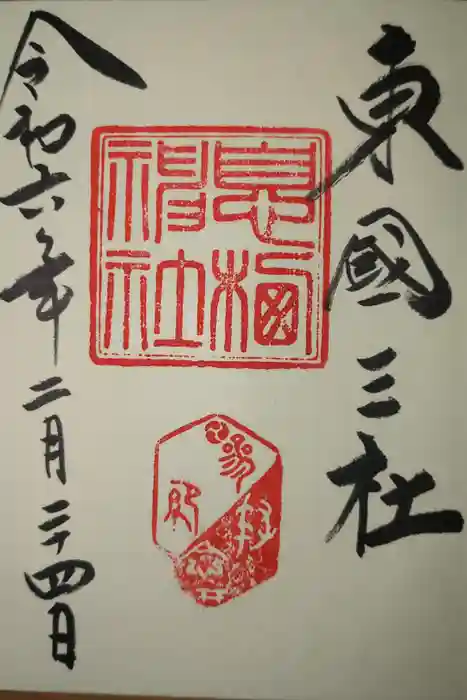 東國三社
息栖
神社
令和六年二月二十四日